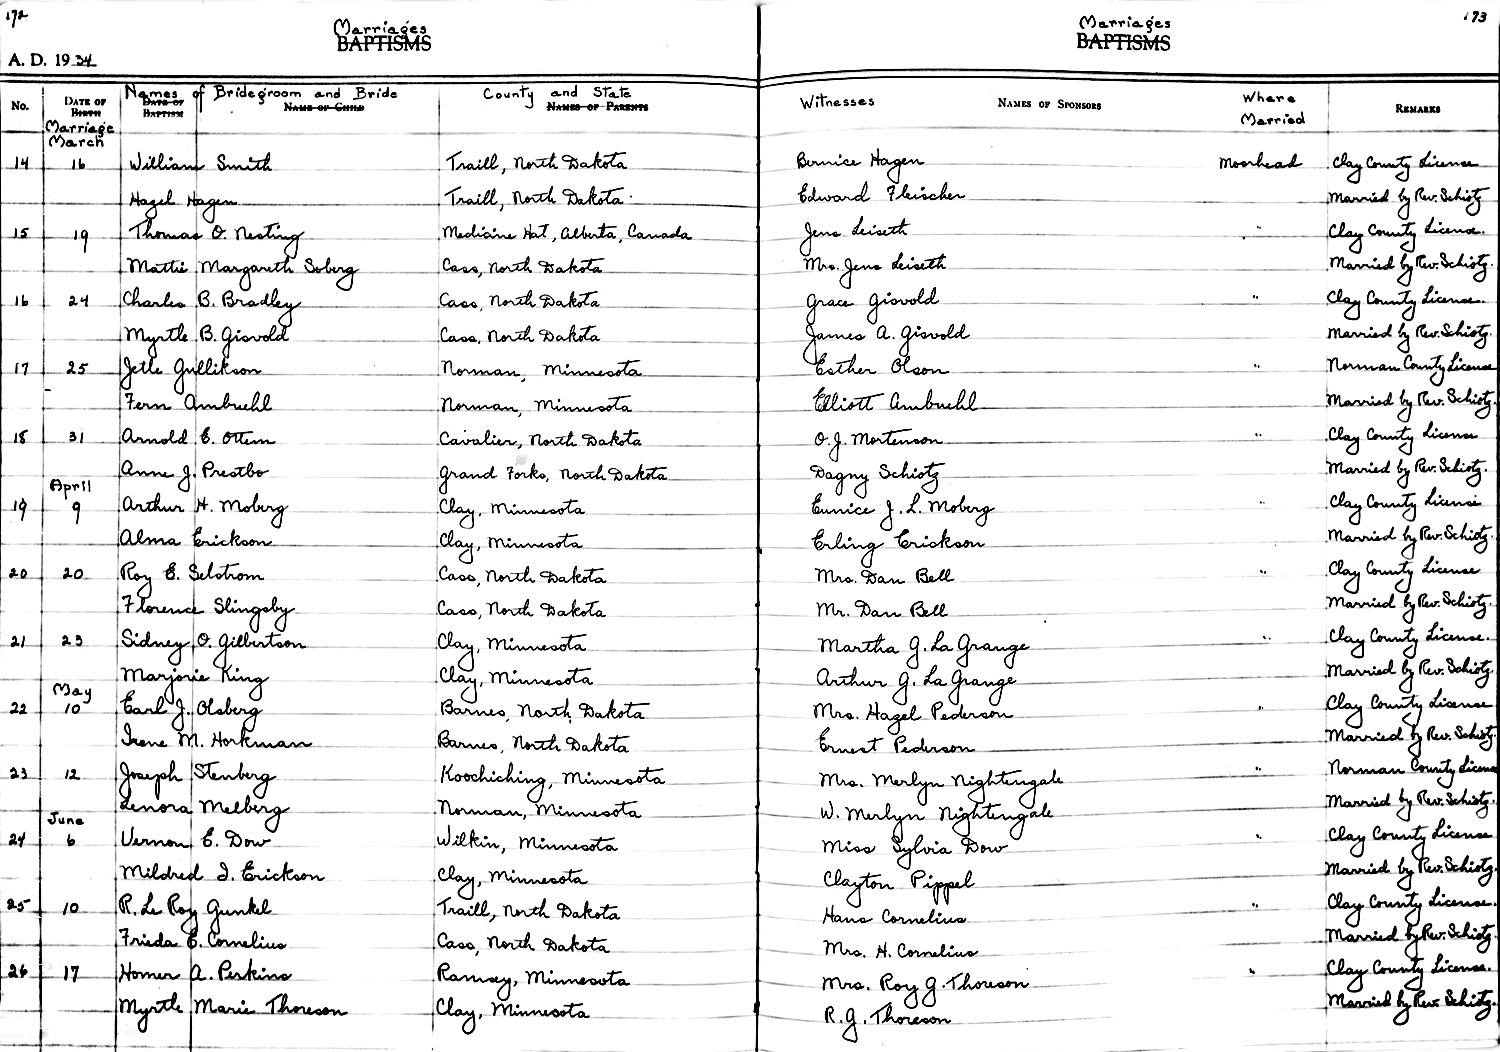 172
Marriages
BAPTISMS
A. D. 1934
Marriages
BAPTISMS
173
No. DATE OF BIRTH Marriage Names of Bridegroom and Bride DATE OF BAPTISM NAME OF CHILD County and State NAMES OF PARENTS Witnesses NAMES OF SPONSORS Where Married REMARKS
March
14 16 William Smith Traill, North Dakota Bernice Hagen Moorhead Clay County License
Hazel Hagen Traill, North Dakota Edward Fleischer Married by Rev. Schiotz
15 19 Thomas O. Nesting Medicine Hat, Alberta, Canada Jens Leiseth " Clay County License.
Mattie Margareth Soberg Cass, North Dakota Mrs. Jens Leiseth Married by Rev. Schiotz.
16 24 Charles B. Bradley Cass, North Dakota Grace Gisvold " Clay County License.
Myrtle B. Gisvold Cass, North Dakota James A. Gisvold Married by Rev. Schiotz.
17 25 Jetle Gullikson Norman, Minnesota Esther Olson " Norman County License
Fern Ambuehl Norman, Minnesota Elliott Ambuehl Married by Rev. Schiotz.
18 31 Arnold E. Ottem Cavalier, North Dakota O. J. Mortenson " Clay County License
Anne J. Prestbo Grand Forks, North Dakota Dagny Schiotz Married by Rev. Schiotz.
April
19 9 Arthur H. Moberg Clay, Minnesota Eunice J. L. Moberg " Clay County License
Alma Erickson Clay, Minnesota Erling Erickson Married by Rev. Schiotz.
20 20 Roy E. Selstrom Cass, North Dakota Mrs. Dan Bell " Clay County License
Florence Slingsby Cass, North Dakota Mr. Dan Bell Married by Rev. Schiotz.
21 23 Sidney O. Gilbertson Clay, Minnesota Martha G. La Grange " Clay County License.
Marjorie King Clay, Minnesota Arthur G. La Grange Married by Rev. Schiotz.
May
22 10 Earl J. Olsberg Barnes, North Dakota Mrs. Hazel Pederson " Clay County License
Irene M. Horkman Barnes, North Dakota Ernest Pederson Married by Rev. Schiotz.
23 12 Joseph Stenberg Koochiching, Minnesota Mrs. Merlyn Nightengale " Norman County License
Lenora Melberg Norman, Minnesota W. Merlyn Nightengale Married by Rev. Schiotz.
June
24 6 Vernon E. Dow Wilkin, Minnesota Miss Sylvia Dow " Clay County License
Mildred I. Erickson Clay, Minnesota Clayton Pippel Married by Rev. Schiotz.
25 10 R. Le Roy Gunkel Traill, North Dakota Hans Cornelius " Clay County License.
Frieda E. Cornelius Cass, North Dakota Mrs. H. Cornelius Married by Rev. Schiotz.
26 17 Homer A. Perkins Ramsey, Minnesota Mrs. Roy G. Thoreson " Clay County License.
Myrtle Marie Thoreson Clay, Minnesota R. G. Thoreson Married by Rev. Schiotz.